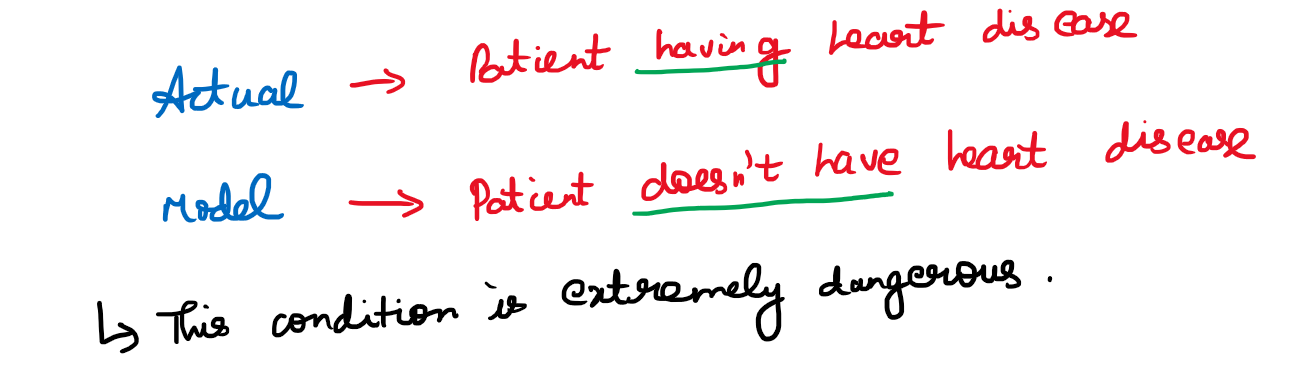 Actual → Patient having heart disease
Model → Patient doesn't have heart disease
↳ This condition is extremely dangerous.